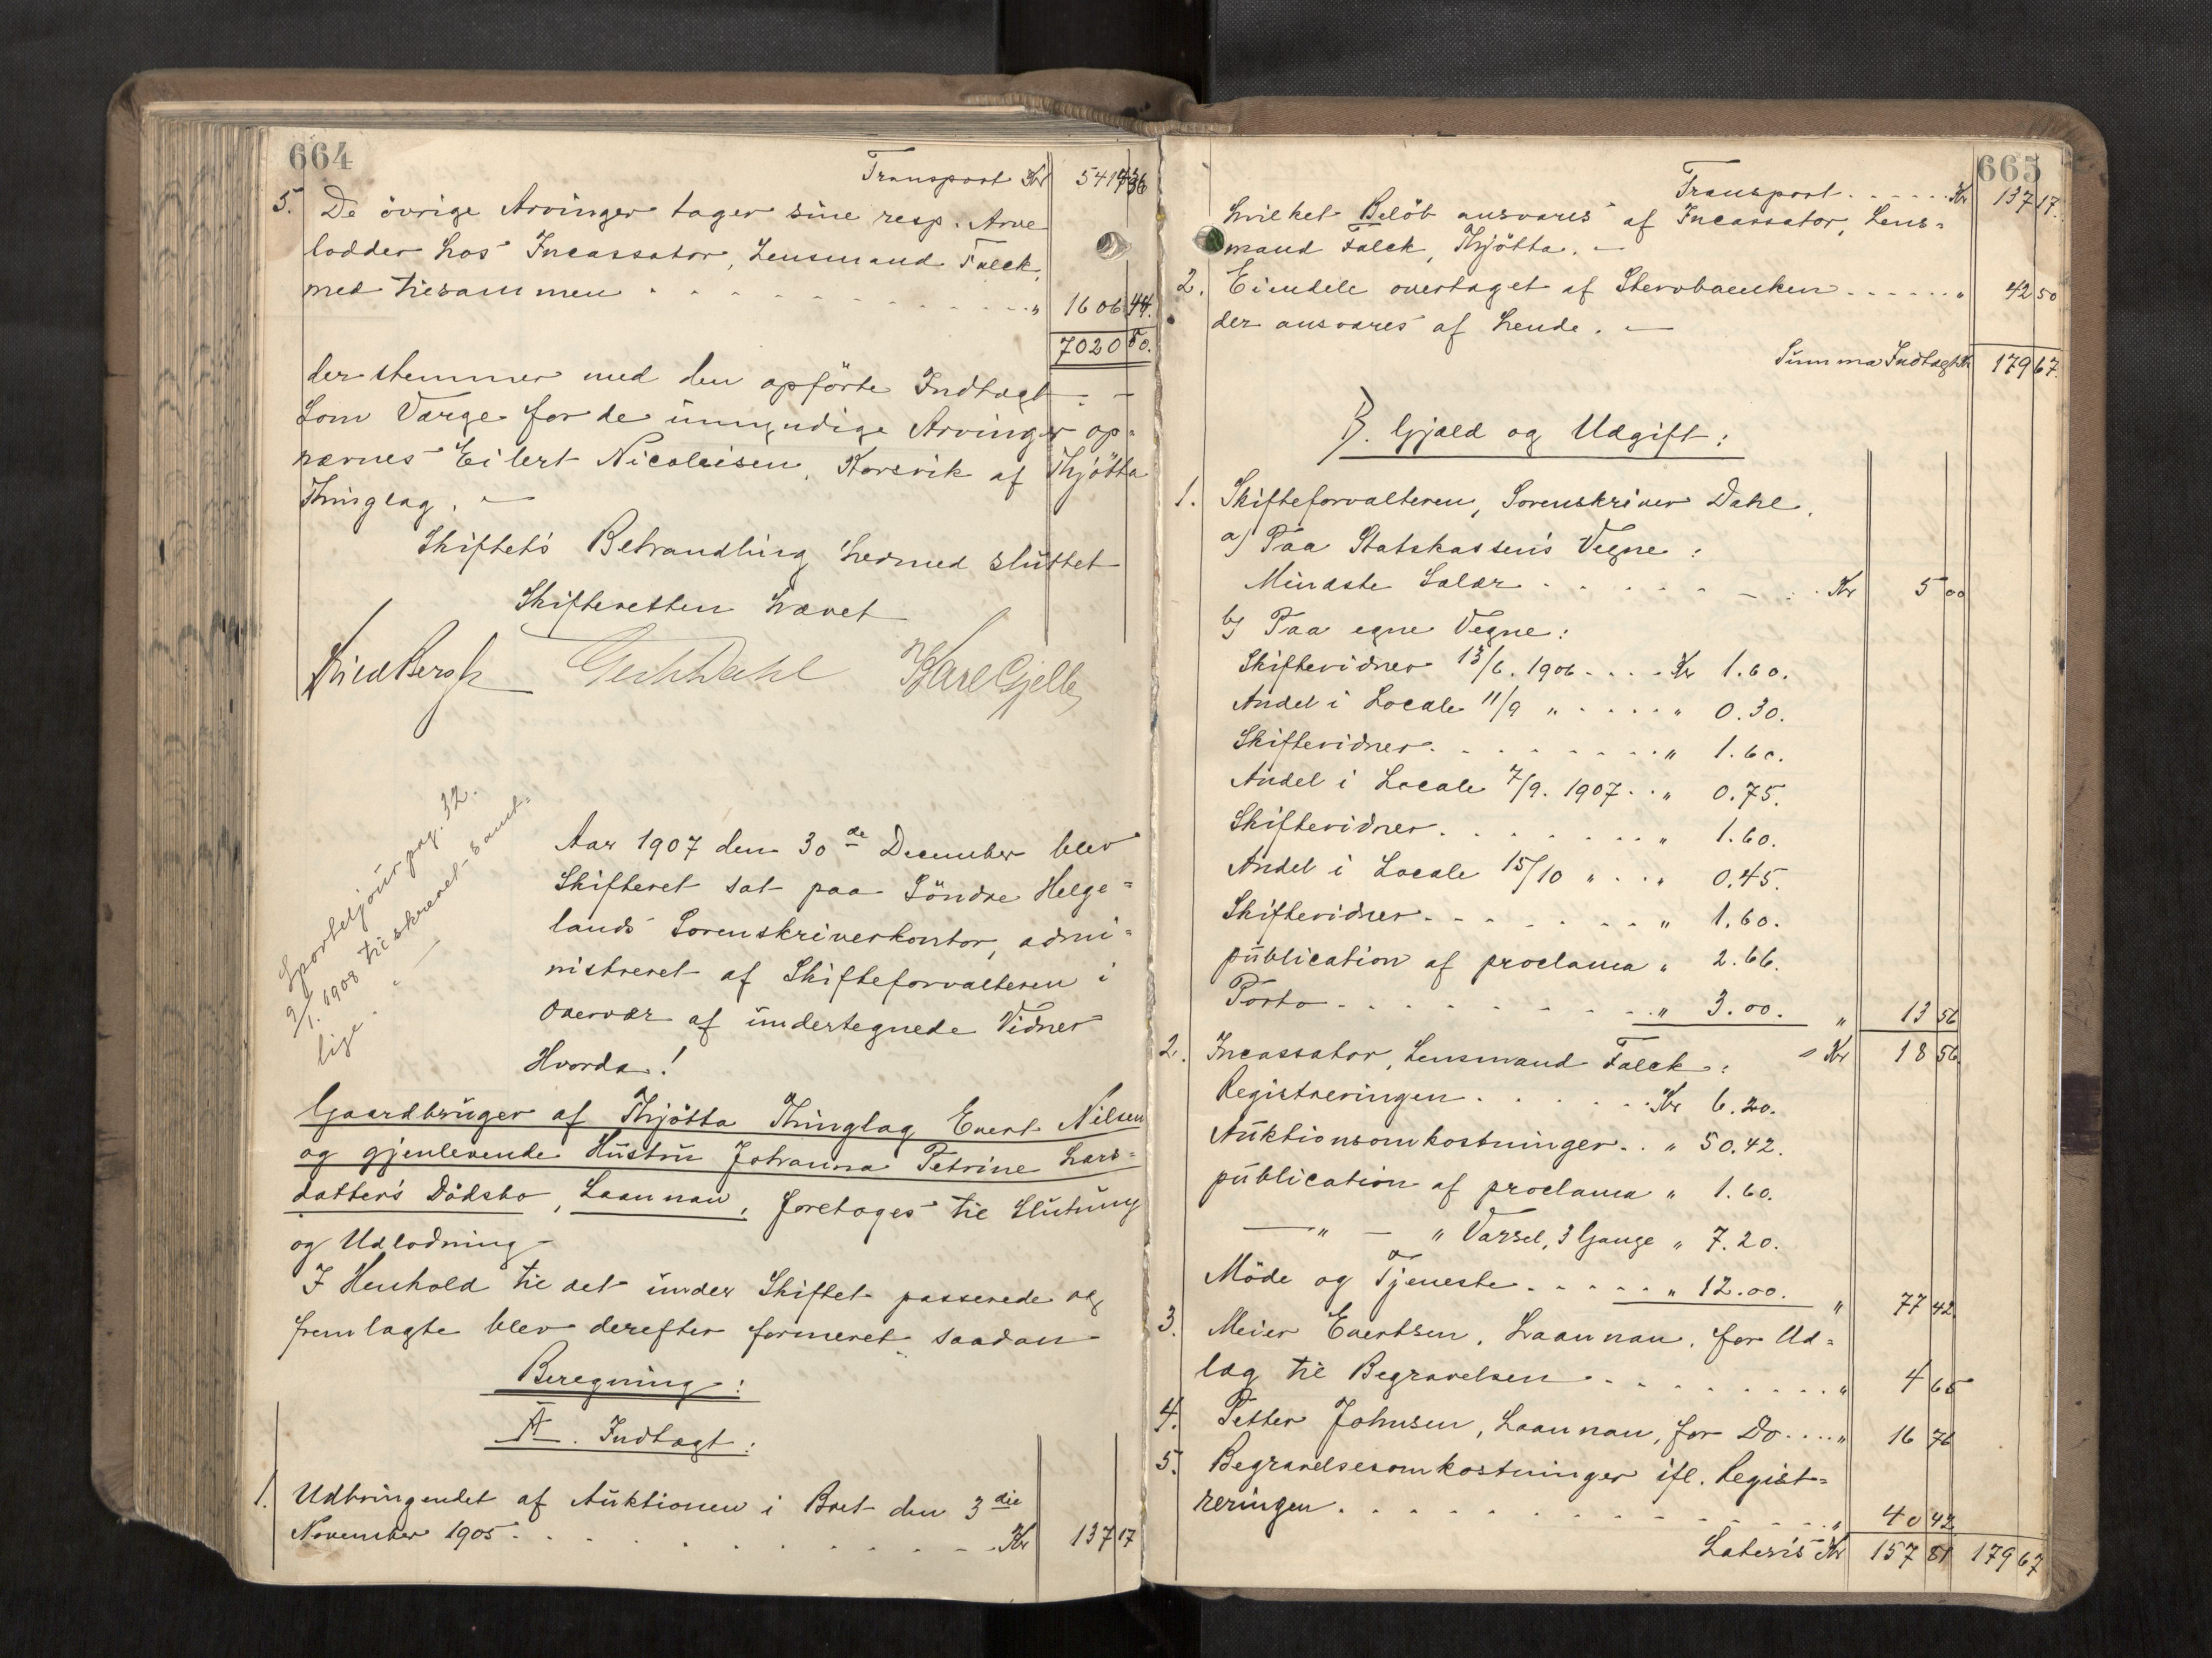 664
Transport Kr 5414 36
5. De övrige Arvinger tager sine resp. Arve
lodder hos Incassator, Lensmand Falck,
med tilsammen . . . . . . . . . . . " 1606 44.
7020 80.
der stemmer med den opförte Indtægt. —
Som Værge for de umyndige Arvinger op=
nævnes Eilert Nicolaisen, Korsvik af Thjötta
Thinglag. —
Skiftets Behandling hermed sluttet
Skifteretten hævet
Dahl Karl Gjelle
Sporteljour. pag. 32.
9/1. 1908 tilskrevet samt=
lige. —
Aar 1907 den 30de December blev
Skifteret sat paa Söndre Helge=
lands Sorenskriverkontor, admi=
nistreret af Skifteforvalteren i
Overvær af undertegnede Vidner
Hvorda!
Gaardbruger af Thjötta Thinglag Evert Nilsen
og gjenlevende Hustru Johanna Petrine Lars=
datter's Dödsbo, Laannan, foretoges til Slutning
og Udlodning —
I Henhold til det under Skiftet passerede og
fremlagte blev derefter formeret saadan
Beregning:
A. Indtægt:
1. Udbringendet af Auktionen i Boet den 3die
November 1905 . . . . . . . . . . Kr 137 17
665
Transport . . . . . . Kr 137 17.
hvilket Belöb ansvares af Incassator, Lens=
mand Falck, Thjötta. —
2. Eiendele overtaget af Stervboenken . . . . . . " 42 50
der ansvares af hende. —
Summa Indtægt Kr 179 67.
B. Gjæld og Udgift:
1. Skifteforvalteren, Sorenskriver Dahl.
a) Paa Statskassens Vegne:
Mindste Salær . . . . . . . . Kr 5 00
b) Paa egne Vegne:
Skiftevidner 13/6. 1906 . . . . Kr 1.60.
Andel i Locale 11/9 " . . . . . " 0.30.
Skiftevidner . . . . . . . . . " 1.60.
Andel i Locale 7/9. 1907 . . " 0.75.
Skiftevidner . . . . . . . . " 1.60.
Andel i Locale 15/10 " . . . " 0.45.
Skiftevidner . . . . . . . . " 1.60.
publication af proclama " 2.66.
Porto . . . . . . . . . . . " 3.00. " 13 56
= Kr 18 56.
2. Incassator, Lensmand Falck:
Registreringen . . . . . . . Kr 6.20.
Auktionsomkostninger . . " 50.42.
publication af proclama " 1.60.
— " — " Varsel, 3 Gange " 7.20.
Möde og Tjeneste . . . . . " 12.00. " 77 42.
3. Meier Evertsen, Laannan, for Ud=
læg til Begravelsen . . . . . . . . . " 4 65
4. Petter Johnsen, Laannan, for Do . . . . " 16 76
5. Begravelsesomkostninger ifl. Regist=
reringen . . . . . . . . . . . . . . " 40 42
Lateris Kr 157 81 179 67